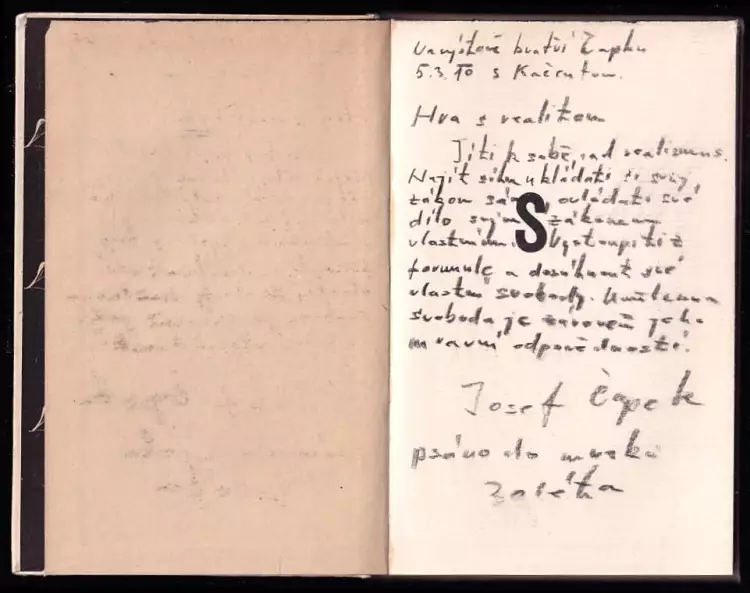 Na výstavě bratří Čapků
5.3. 80 s Kačentou.
Hra s realitou
Jíti k sobě, nad realismus.
Najít sílu ukládati si svůj
zákon sám, ovládati své
dílo svým zákonem
vlastním. Vystoupiti z
S
formule a dosáhnout své
vlastní svobody. Umělcova
svoboda je zároveň jeho
mravní odpovědností.
Josef Čapek
psáno do mraků